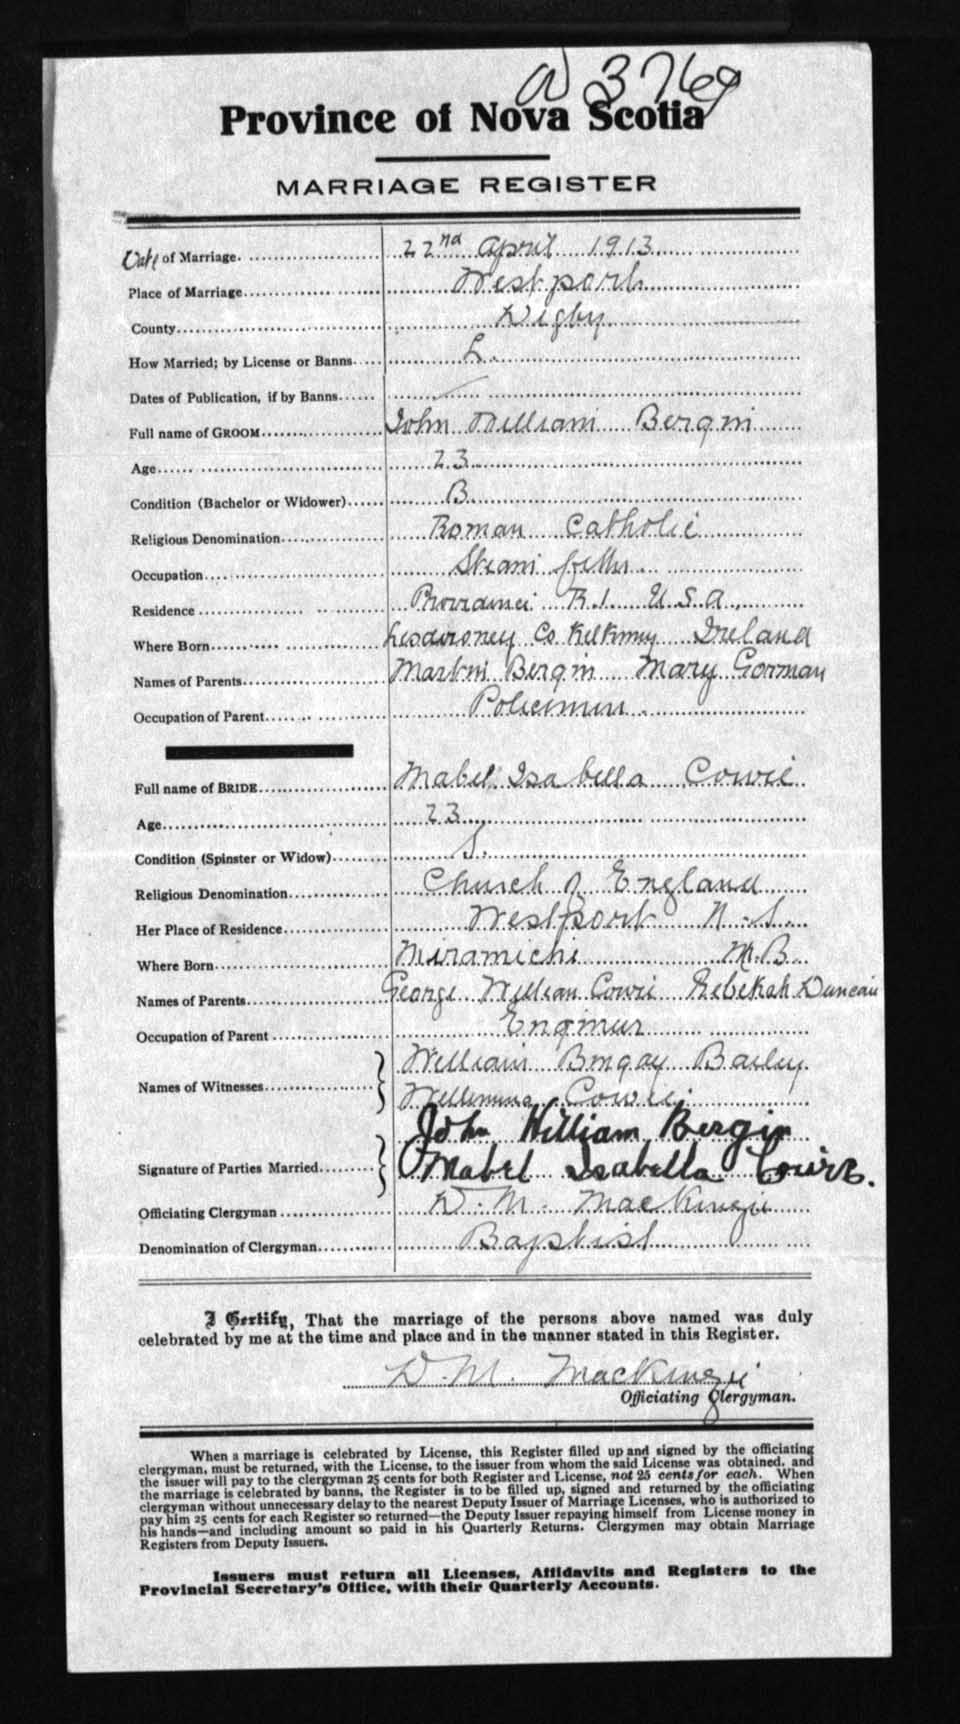 3769
Province of Nova Scotia
MARRIAGE REGISTER
Date of Marriage. 22nd April 1913
Place of Marriage Westport
County Digby
How Married; by License or Banns L.
Dates of Publication, if by Banns
Full name of GROOM John William Bergin
Age 23
Condition (Bachelor or Widower) B
Religious Denomination Roman Catholic
Occupation Steam fitter
Residence Providence R.I. U.S.A.
Where Born Co. Kilkenny Ireland
Names of Parents Martin Bergin Mary Gorman
Occupation of Parent Policeman
Full name of BRIDE Mabel Isabella Cowie
Age 23
Condition (Spinster or Widow) S.
Religious Denomination Church of England
Her Place of Residence Westport N.S.
Where Born Miramichi N.B.
Names of Parents George William Cowie Rebekah Duncan
Occupation of Parent Engineer
Names of Witnesses William Bingay Bailey
Cowie
John William Bergin
Signature of Parties Married Mabel Isabella Cowie.
Officiating Clergyman D. M. MacKenzie
Denomination of Clergyman Baptist
I Certify, That the marriage of the persons above named was duly
celebrated by me at the time and place and in the manner stated in this Register.
D. M. MacKenzie
Officiating Clergyman.
When a marriage is celebrated by License, this Register filled up and signed by the officiating
clergyman, must be returned, with the License, to the issuer from whom the said License was obtained, and
the issuer will pay to the clergyman 25 cents for both Register and License, not 25 cents for each. When
the marriage is celebrated by banns, the Register is to be filled up, signed and returned by the officiating
clergyman without unnecessary delay to the nearest Deputy Issuer of Marriage Licenses, who is authorized to
pay him 25 cents for each Register so returned—the Deputy Issuer repaying himself from License money in
his hands—and including amount so paid in his Quarterly Returns. Clergymen may obtain Marriage
Registers from Deputy Issuers.
Issuers must return all Licenses, Affidavits and Registers to the
Provincial Secretary's Office, with their Quarterly Accounts.